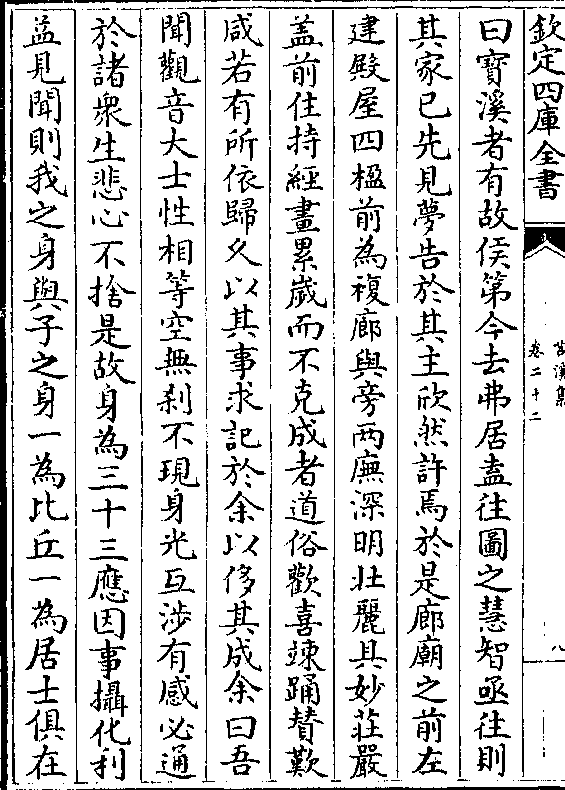 欽定四庫全書
苕溪集
卷二十二
八
曰寶溪者有故侯第今去弗居盍往圖之慧智亟往則
其家已先見夢告於其主欣然許焉於是廊廟之前左
建殿屋四楹前為複廊與旁兩廡深明壯麗具妙莊嚴
蓋前住持經畫累嵗而不克成者道俗歡喜竦踊賛歎
咸若有所依歸久以其事求記於余以侈其成余曰吾
聞觀音大士性相等空無刹不現身光互涉有感必通
於諸衆生悲心不捨是故身為三十三應因事攝化利
益見聞則我之身與子之身一為比丘一為居士俱在